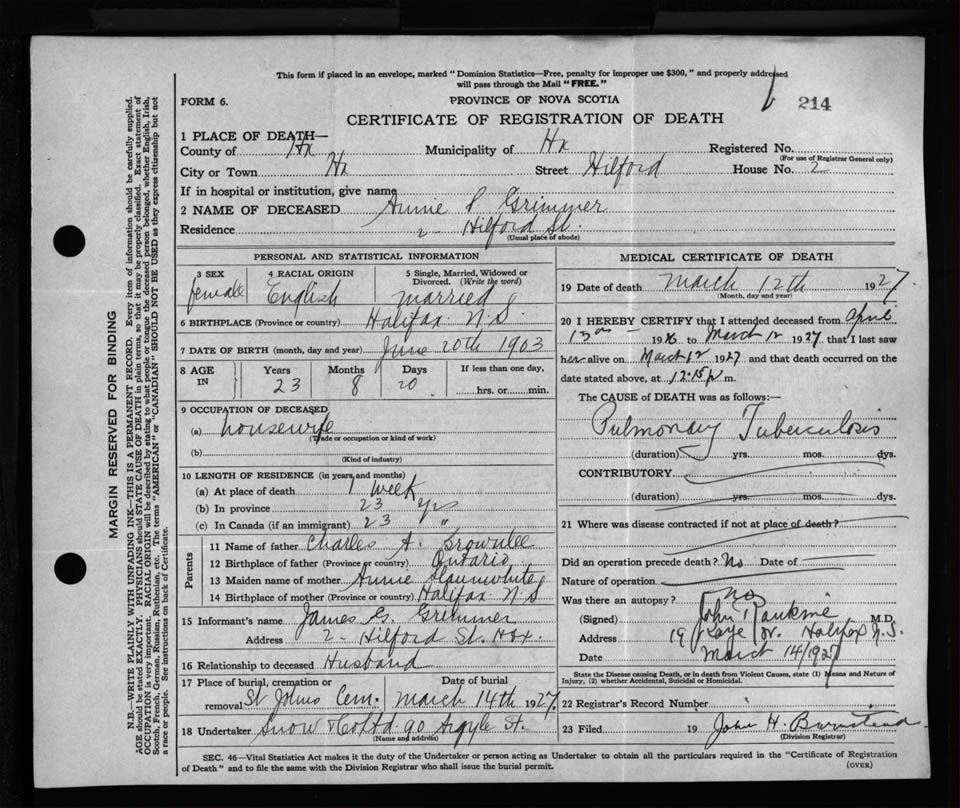 This form if placed in an envelope, marked "Dominion Statistics—Free, penalty for improper use $300," and properly addressed
will pass through the Mail "FREE."
FORM 6.
PROVINCE OF NOVA SCOTIA
214
CERTIFICATE OF REGISTRATION OF DEATH
1 PLACE OF DEATH—
County of Hx Municipality of Hx Registered No.
(For use of Registrar General only)
City or Town Hx Street Hilford House No. 2
If in hospital or institution, give name
2 NAME OF DECEASED Annie S Grimmer
Residence 2- Hilford St.
(Usual place of abode)
PERSONAL AND STATISTICAL INFORMATION
3 SEX 4 RACIAL ORIGIN 5 Single, Married, Widowed or
Divorced. (Write the word)
female English married
6 BIRTHPLACE (Province or country) Halifax N.S.
7 DATE OF BIRTH (month, day and year) June 20th 1903
8 AGE IN Years Months Days If less than one day,
23 8 20 hrs. or min.
9 OCCUPATION OF DECEASED
(a) housewife
(Trade or occupation or kind of work)
(b)
(Kind of industry)
10 LENGTH OF RESIDENCE (in years and months)
(a) At place of death 1 week
(b) In province 23 yrs
(c) In Canada (if an immigrant) 23 "
Parents
11 Name of father Charles A. Brownlee
12 Birthplace of father (Province or country) Ontario
13 Maiden name of mother Annie Slaunwhite
14 Birthplace of mother (Province or country) Halifax N.S
15 Informant's name James G. Grimmer
Address 2- Hilford St. Hfx.
16 Relationship to deceased Husband
17 Place of burial, cremation or Date of burial
removal St Johns Cem. March 14th 1927
18 Undertaker Snow & Co Ltd 90 Argyle St.
(Name and address)
MEDICAL CERTIFICATE OF DEATH
19 Date of death March 12th 1927
(Month, day and year)
20 I HEREBY CERTIFY that I attended deceased from April
1926 to March 12 1927 that I last saw
her alive on March 12 1927 and that death occurred on the
date stated above, at 12.15 p m.
The CAUSE of DEATH was as follows:—
Pulmonary Tuberculosis
(duration) yrs. mos. dys.
CONTRIBUTORY
(duration) yrs. mos. dys.
21 Where was disease contracted if not at place of death?
Did an operation precede death? No Date of
Nature of operation
Was there an autopsy? No
(Signed) John Rankine M.D.
Address 19 Kaye St. Halifax N.S.
Date March 14/1927
State the Disease causing Death, or in death from Violent Causes, state (1) Means and Nature of
Injury, (2) whether Accidental, Suicidal or Homicidal.
22 Registrar's Record Number
23 Filed 19 John H. Barnstead
(Division Registrar)
SEC. 46—Vital Statistics Act makes it the duty of the Undertaker or person acting as Undertaker to obtain all the particulars required in the "Certificate of Registration
of Death" and to file the same with the Division Registrar who shall issue the burial permit. (OVER)
MARGIN RESERVED FOR BINDING
N.B.—WRITE PLAINLY WITH UNFADING INK—THIS IS A PERMANENT RECORD. Every item of information should be carefully supplied.
AGE should be stated EXACTLY. PHYSICIANS should STATE CAUSE OF DEATH in plain terms, so that it may be properly classified. Exact statement of
OCCUPATION is very important. RACIAL ORIGIN will be described by stating to what people or tongue the deceased person belonged, whether English, Irish,
Scotch, French, German, Russian, Ruthenian, etc. The terms "AMERICAN" or "CANADIAN" SHOULD NOT BE USED as they express citizenship but not
a race or people. See instructions on back of Certificate.